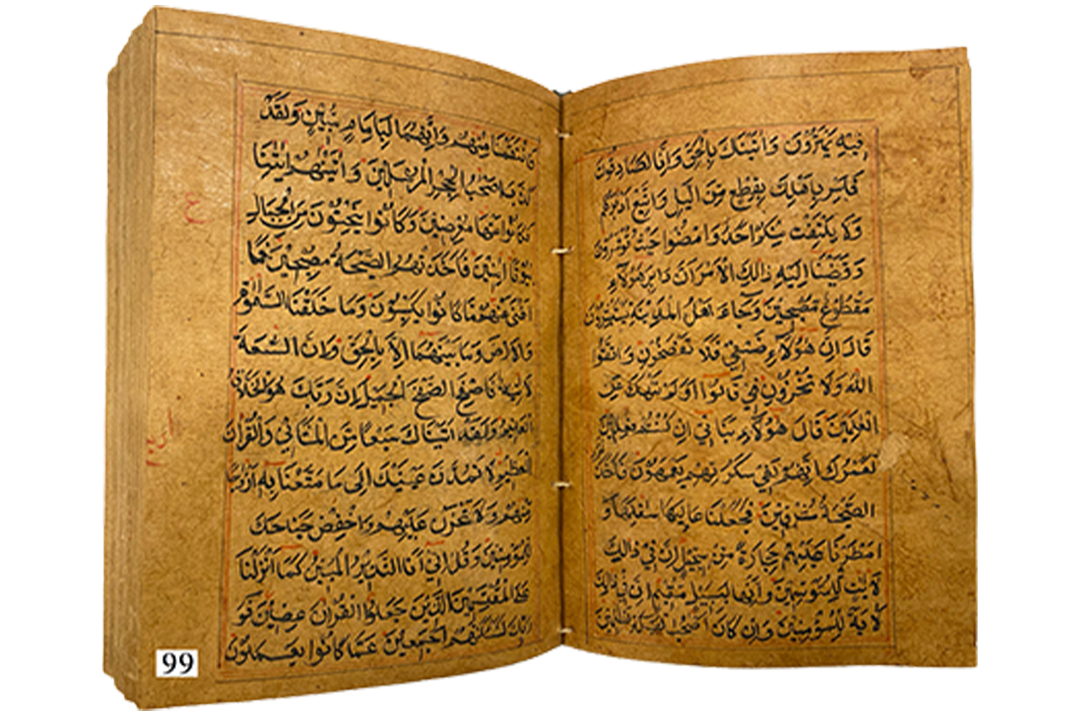 فيه يمترون واتينك بالحق وانا لصادقون
فاسر باهلك بقطع من اليل واتبع ادبارهم
ولا يلتفت منكم احد وامضوا حيث تؤمرون
وقضينا اليه ذالك الامر ان دابر هؤلاء
مقطوع مصبحين وجاء اهل المدينة يستبشرون
قال ان هؤلاء ضيفي فلا تفضحون واتقوا
الله ولا تخزون قالوا اولم ننهك عن
العلمين قال هؤلاء بناتي ان كنتم فعلين
لعمرك انهم لفي سكرتهم يعمهون فاخذتهم
الصيحة مشرقين فجعلنا عاليها سافلها و
امطرنا عليهم حجارة من سجيل ان في ذالك
لايت للمتوسمين وانها لبسبيل مقيم ان في ذالك
لاية للمؤمنين وان كان اصحب الايكة لظلمين
فانتقمنا منهم وانهما لبامام مبين ولقد
كذب اصحب الحجر المرسلين واتينهم ايتنا
فكانوا عنها معرضين وكانوا ينحتون من الجبال
بيوتا امنين فاخذتهم الصيحة مصبحين فما
اغنى عنهم ما كانوا يكسبون وما خلقنا السموت
والارض وما بينهما الا بالحق وان الساعة
لاتية فاصفح الصفح الجميل ان ربك هو الخلاق
العليم ولقد اتيناك سبعا من المثاني والقران
العظيم لا تمدن عينيك الى ما متعنا به ازواجا
منهم ولا تحزن عليهم واخفض جناحك
للمؤمنين وقل اني انا النذير المبين كما انزلنا
على المقتسمين الذين جعلوا القران عضين فو
ربك لنسئلنهم اجمعين عما كانوا يعملون
99